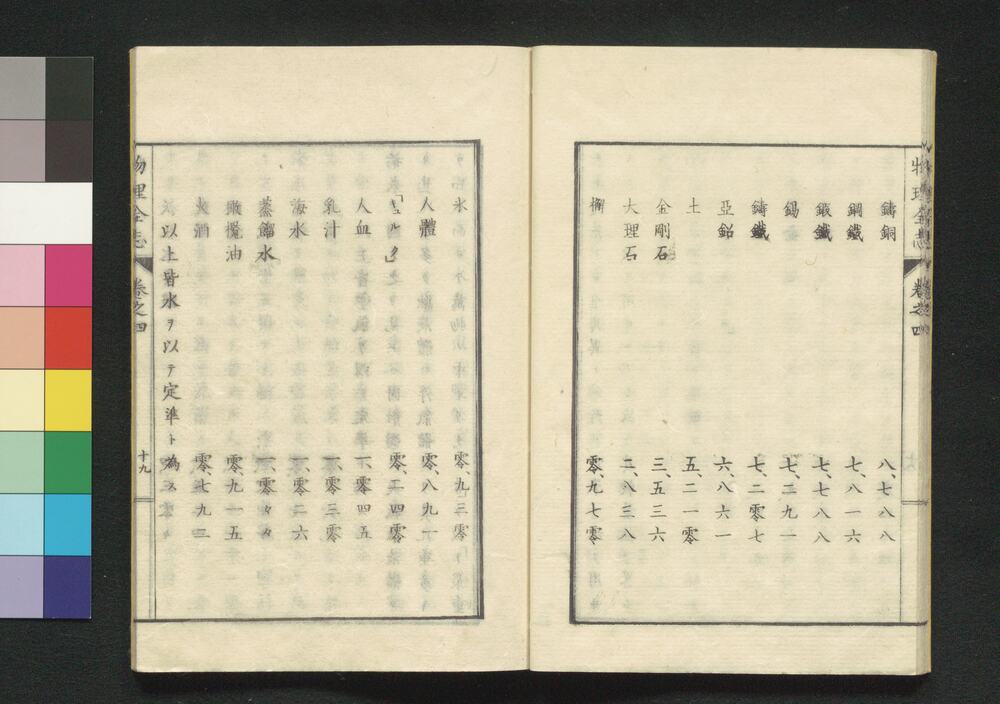 物理全志 卷之四
鑄銅 八、七八八
鋼鐵 七、八一六
鍛鐵 七、七八八
錫 七、二九一
鑄鐵 七、二零七
亞鉛 六、八六一
土 五、二一零
金剛石 三、五三六
大理石 二、八三八
檞 零、九七零
氷 零、九三零
人體 零、八九一
「コルク」 零、二四零
人血 一、零四五
乳汁 一、零三零
海水 一、零二六
蒸餾水 一、零々々
橄欖油 零、九一五
火酒 零、七九二
以上皆水ヲ以テ定準ト為ス
物理全志 卷之四 十九